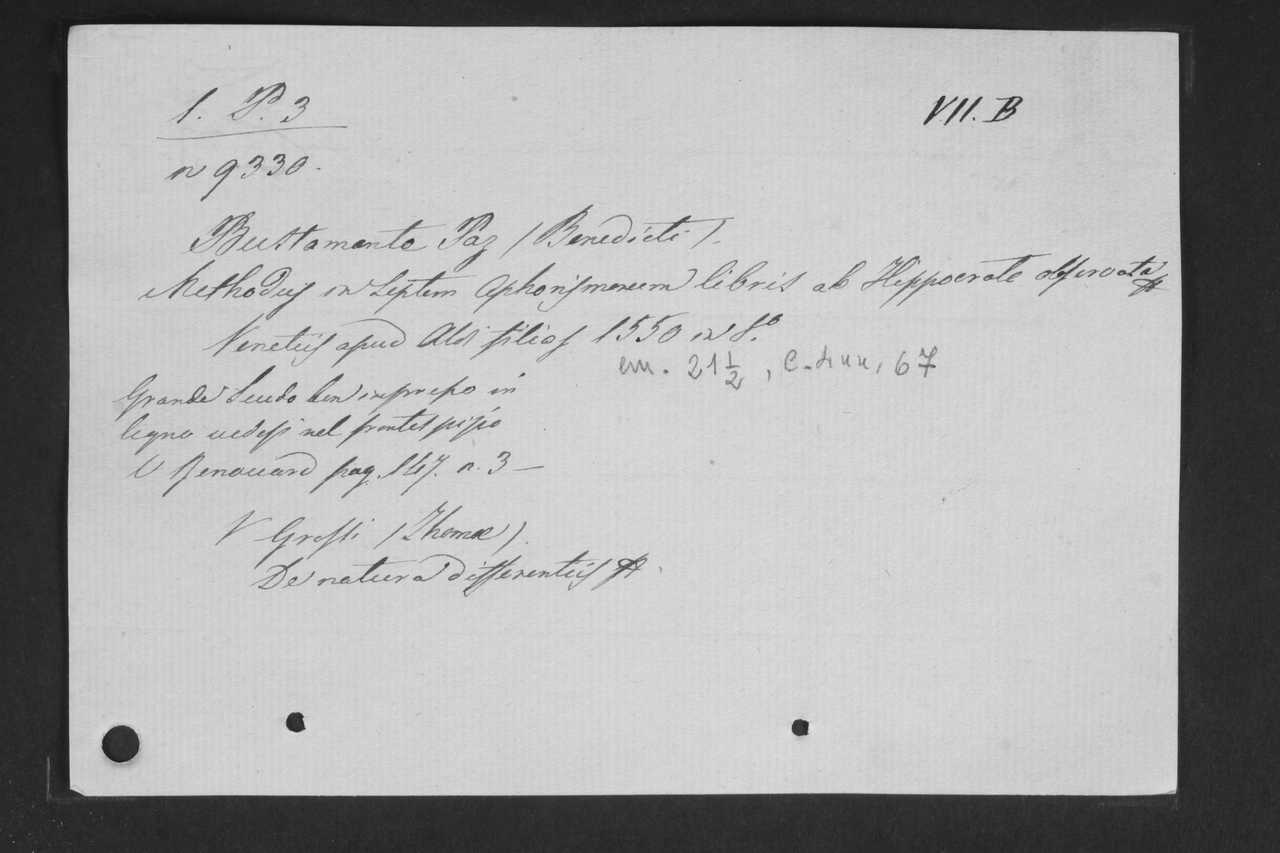 1. P. 3
VII. B
n 9330.
Bustamante Paz (Benedicti).
Methodus in Septem Aphorismorum libris ab Hippocrate observata
Venetiis apud Aldi filios 1550 in 8.º
cm. 21 1/2, c. 4 nn, 67
Grande Scudo ben impresso in
legno vedesi nel frontespizio
V Renouard pag. 147. n. 3 —
V Grossi (Thomæ).
De natura differentiis